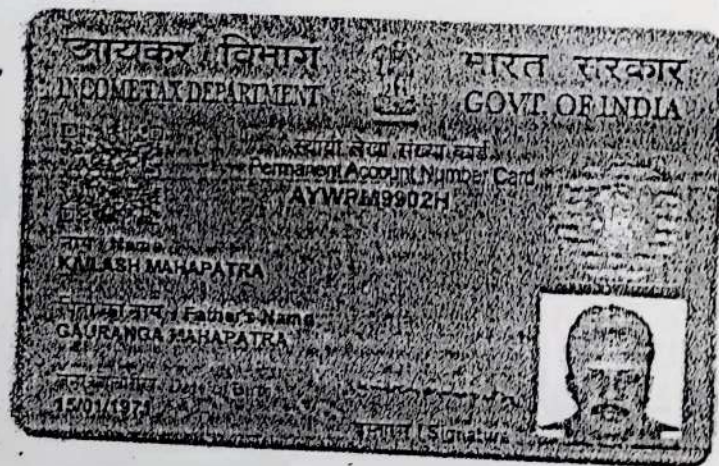 आयकर विभाग
INCOME TAX DEPARTMENT
भारत सरकार
GOVT. OF INDIA
स्थायी लेखा संख्या कार्ड
Permanent Account Number Card
AYWPM9902H
नाम / Name
KAILASH MAHAPATRA
पिता का नाम / Father's Name
GAURANGA MAHAPATRA
Date of Birth
15/01/1971
/ Signature